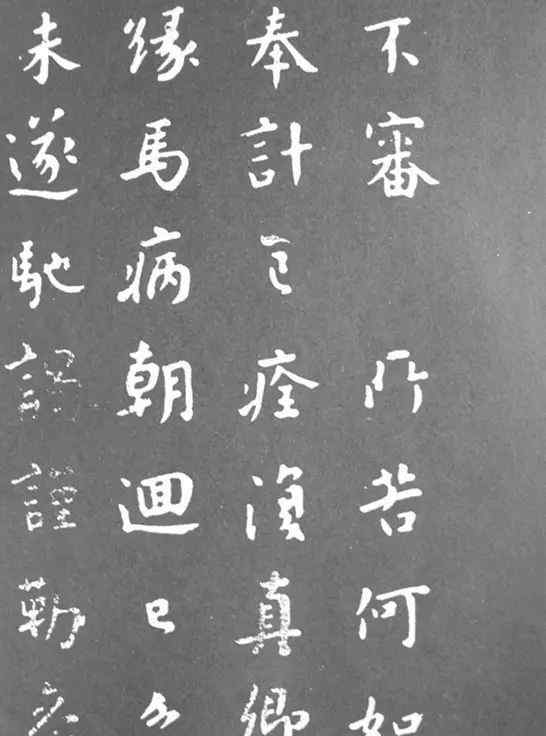 不審 所苦何如
奉計已痊復真卿
緣馬病朝迴已
未遂馳謁謹勒